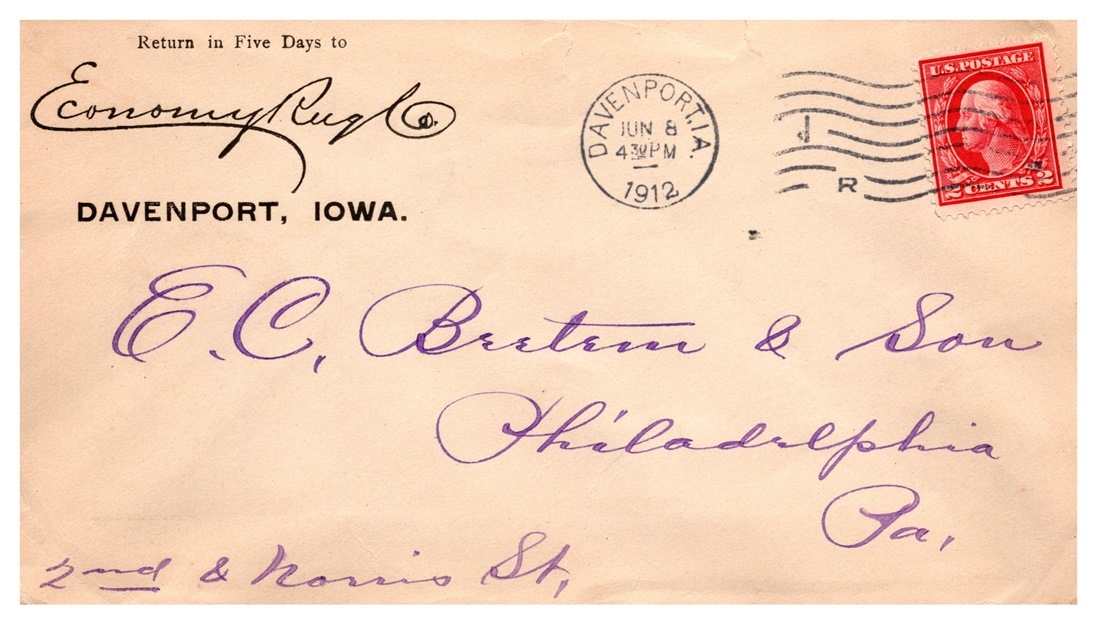 Return in Five Days to
Economy Rug Co.
DAVENPORT, IOWA.
DAVENPORT, IA.
JUN 8
4 30 PM
1912
R
U.S. POSTAGE
2 CENTS 2
E. C. & Son
Philadelphia
Pa,
2nd & Norris St,